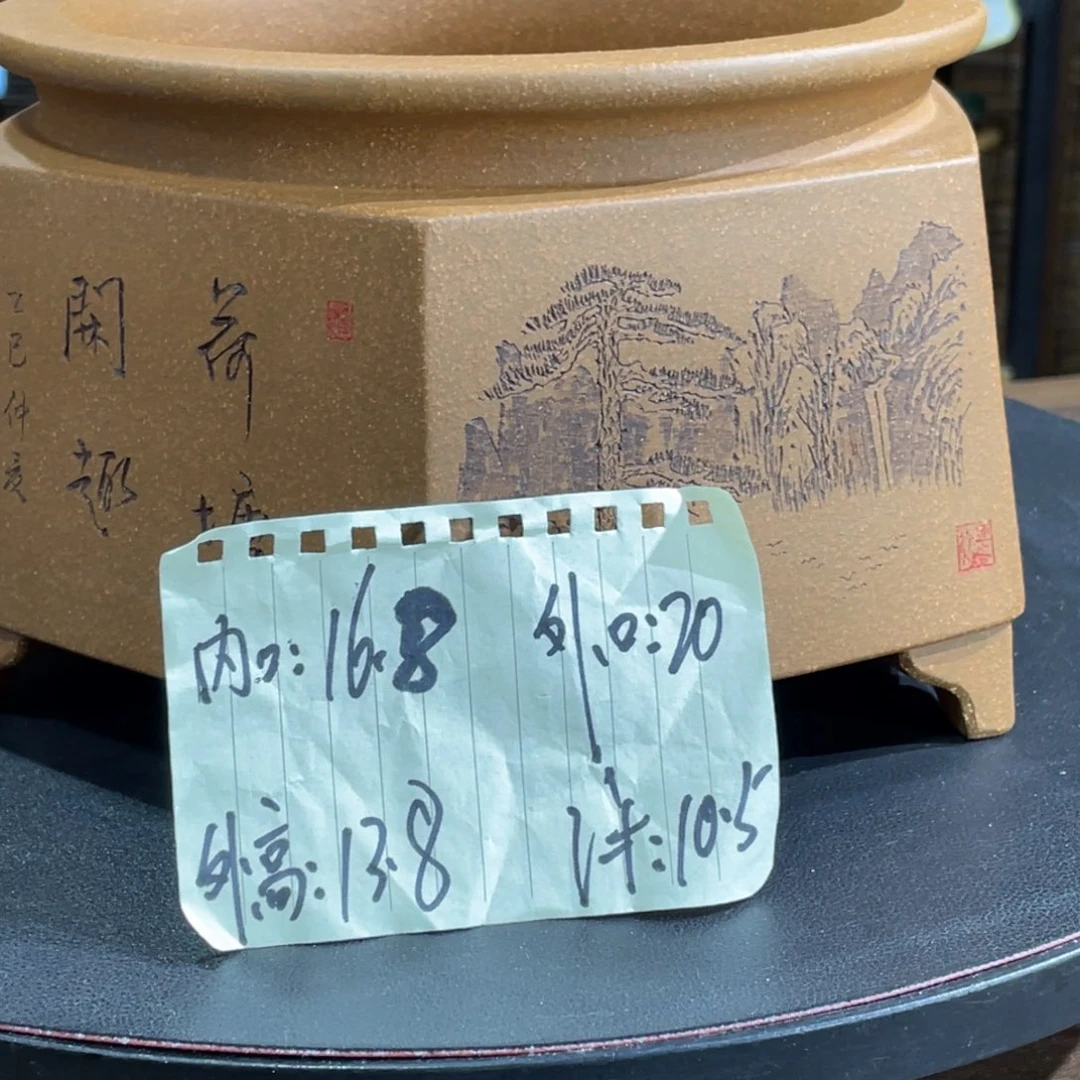 荷塘
閑趣
乙巳仲夏
内口:16.8 外口:20
外高:13.8 深:10.5